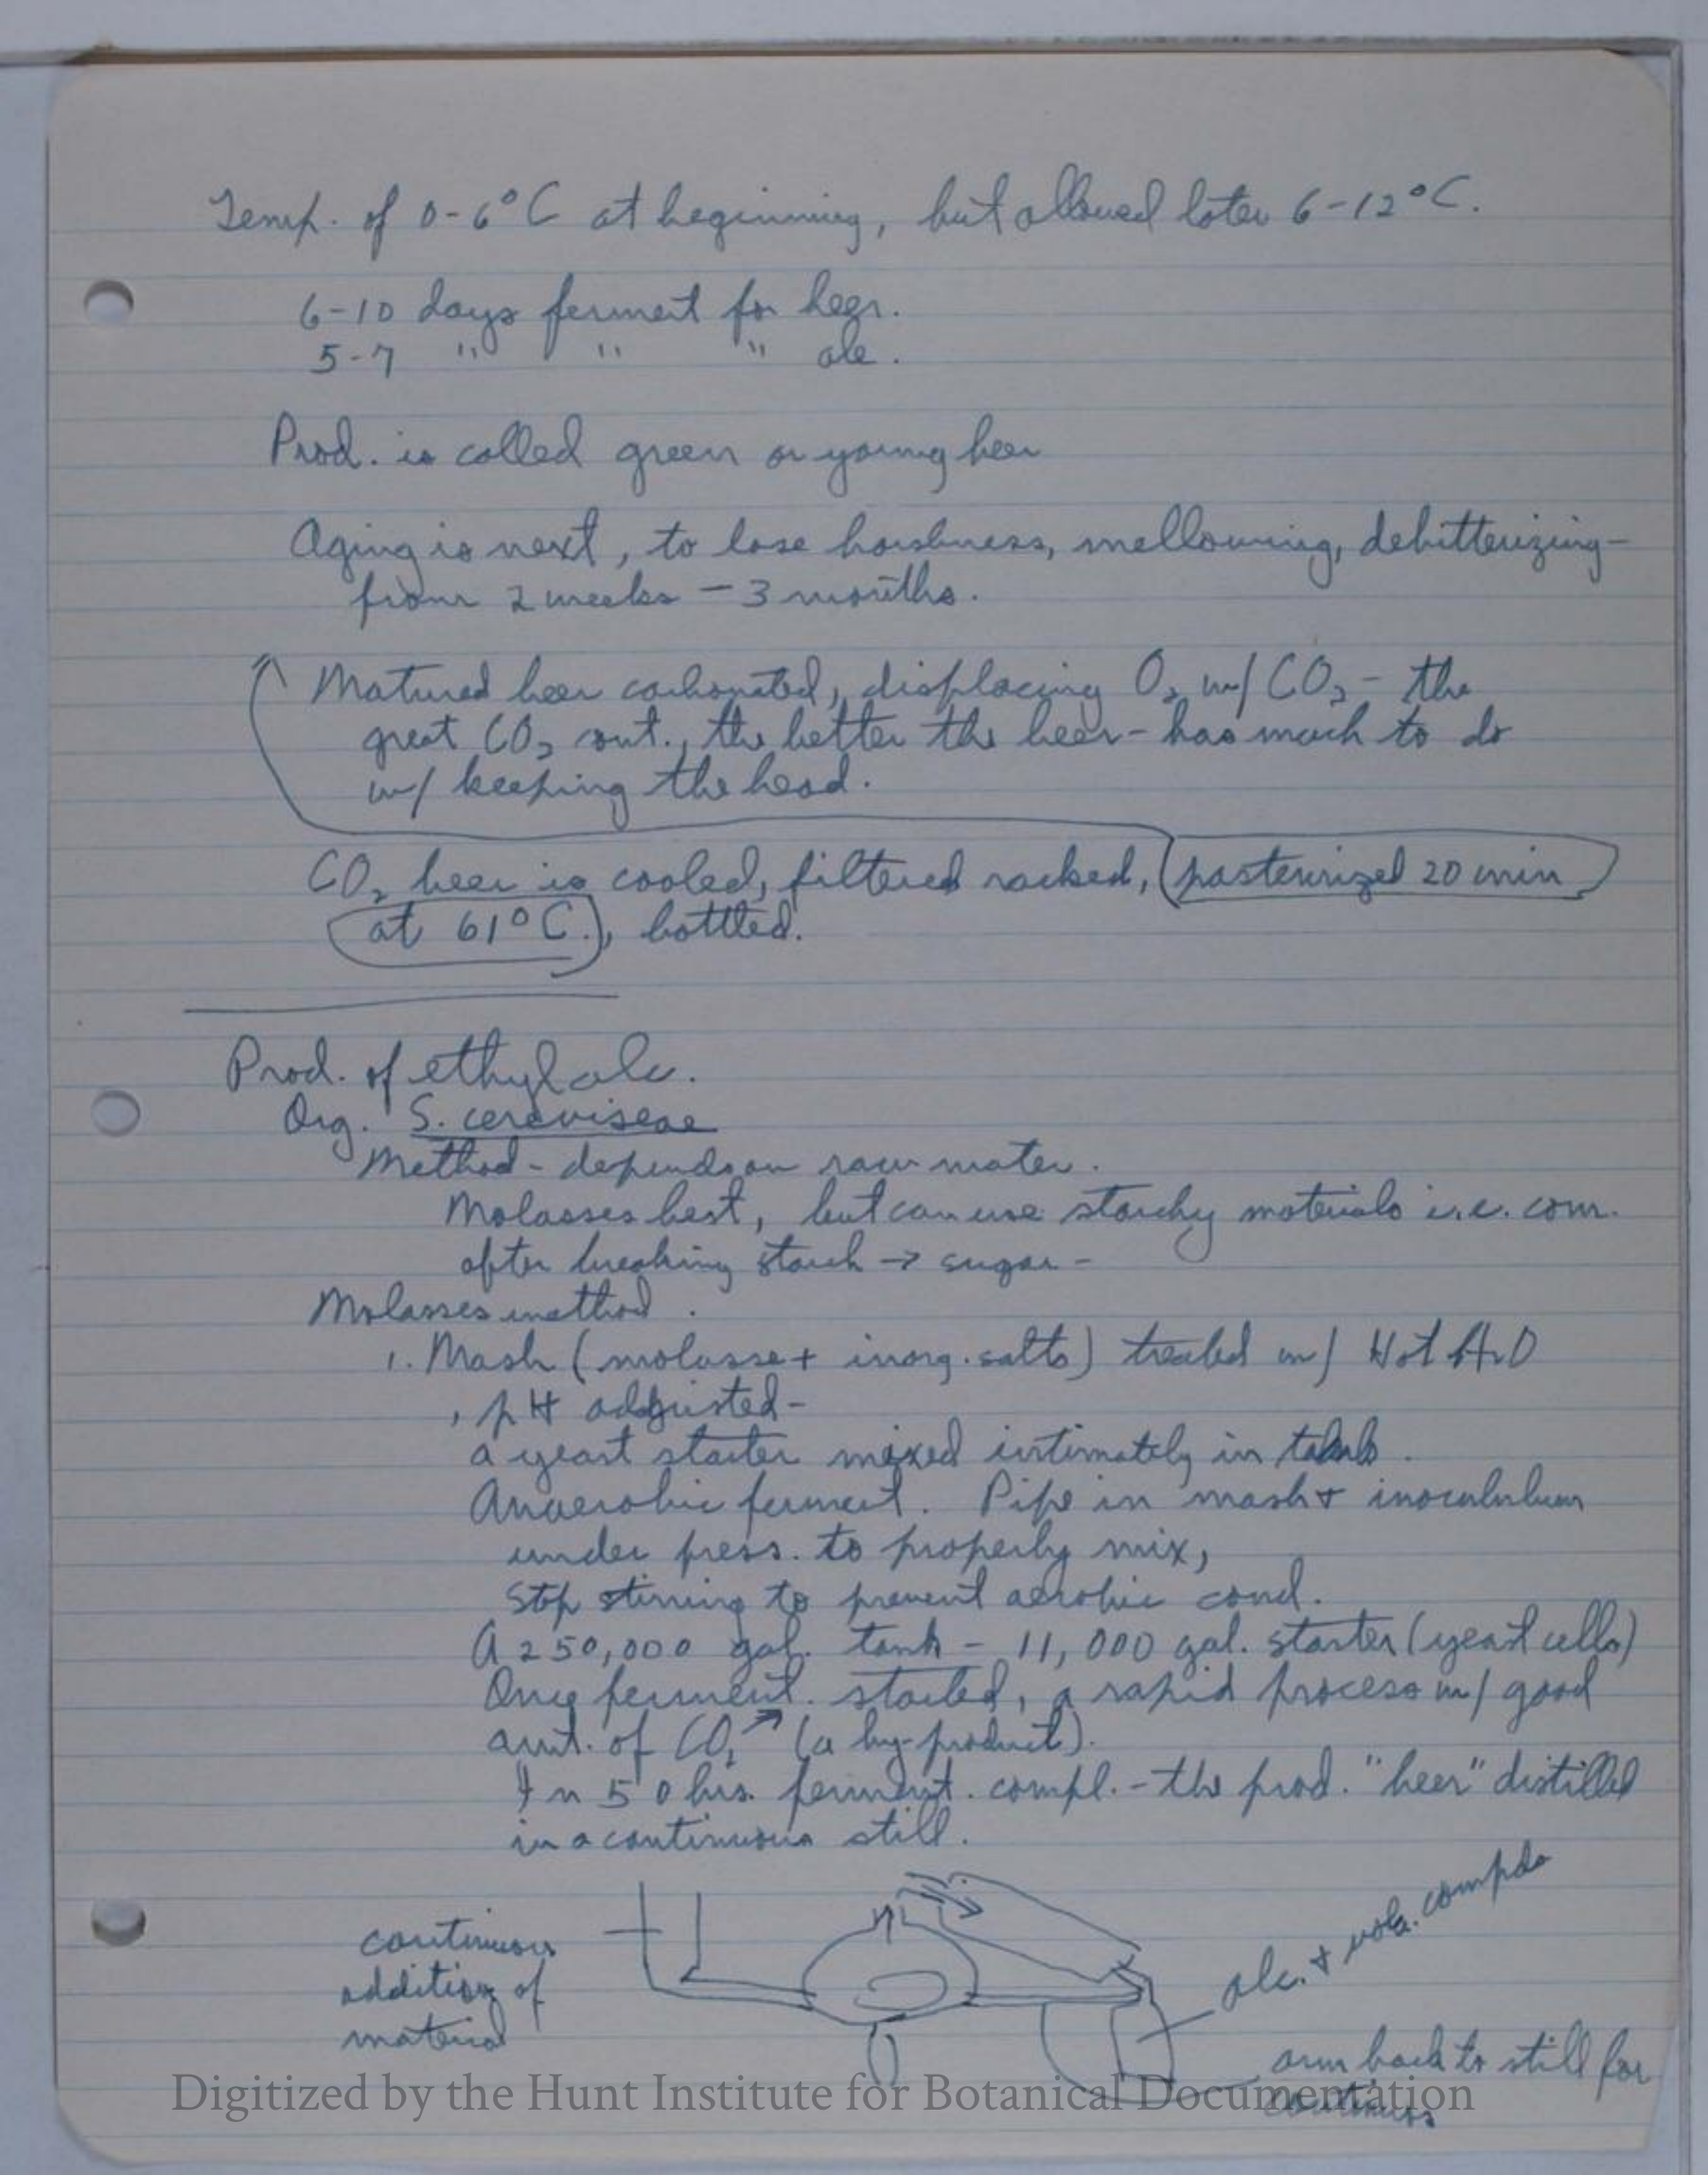 Temp. of 0-6°C at beginning, but allowed later 6-12°C.
6-10 days ferment for beer.
5-7 " " " ale.
Prod. is called green or young beer
Aging is next, to lose harshness, mellowing, debitterizing-
from 2 weeks - 3 months.
Matured beer carbonated, displacing O2 w/ CO2 - the
great CO2 cont., the better the beer - has much to do
w/ keeping the head.
CO2 beer is cooled, filtered racked, (pasteurized 20 min
at 61°C.), bottled.
Prod. of ethyl alc.
Org. S. cereviseae
Method - depends on raw mater.
Molasses best, but can use starchy materials i.e. corn.
after breaking starch → sugar -
Molasses method.
1. Mash (molasse + inorg. salts) treated w/ Hot H2O
, pH adjusted-
a yeast starter mixed intimately in tanks.
Anaerobic ferment. Pipe in mash + inocululum
under press. to properly mix,
Stop stirring to prevent aerobic cond.
A 250,000 gal. tank - 11,000 gal. starter (yeast cells)
Once ferment. started, a rapid process w/ good
amt. of CO2 ↗ (a by-product).
In 50 hrs. ferment. compl. - the prod. "beer" distilled
in a continuous still.
continuous
addition of
material
alc. + vola. compds
arm back to still for
continuos
Digitized by the Hunt Institute for Botanical Documentation